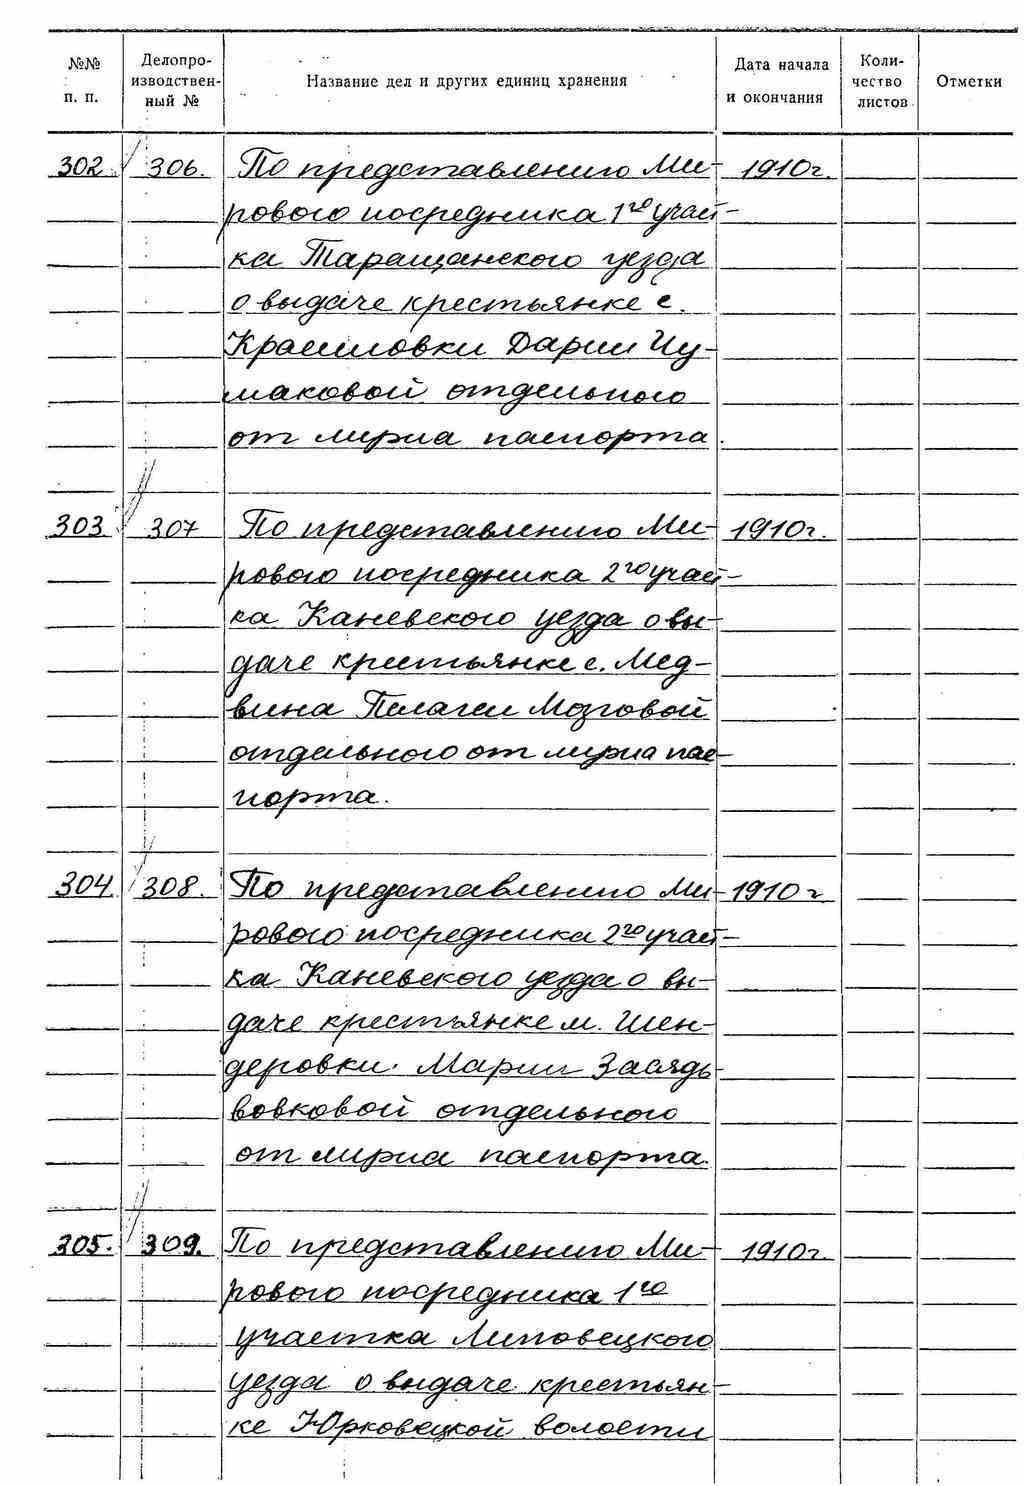 №№ п. п. Делопроизводственный № Название дел и других единиц хранения Дата начала и окончания Количество листов Отметки
302. 306. По представлению Ми- 1910г.
рового посредника 1го участ-
ка Таращанского уезда
о выдаче крестьянке с.
Красиловки Дарии Чу-
маковой отдельного
от мужа паспорта.
303. 307 По представлению Ми- 1910г.
рового посредника 2го участ-
ка Каневского уезда о вы-
даче крестьянке с. Мед-
вина Пелагеи Мозговой
отдельного от мужа пас-
порта.
304. 308. По представлению Ми- 1910г
рового посредника 2го участ-
ка Каневского уезда о вы-
даче крестьянке м. Шен-
деровки. Марии Засядь-
вовковой отдельного
от мужа паспорта.
305. 309. По представлению Ми- 1910г.
рового посредника 1го
участка Липовецкого
уезда о выдаче крестьян-
ке Юрковецкой волости